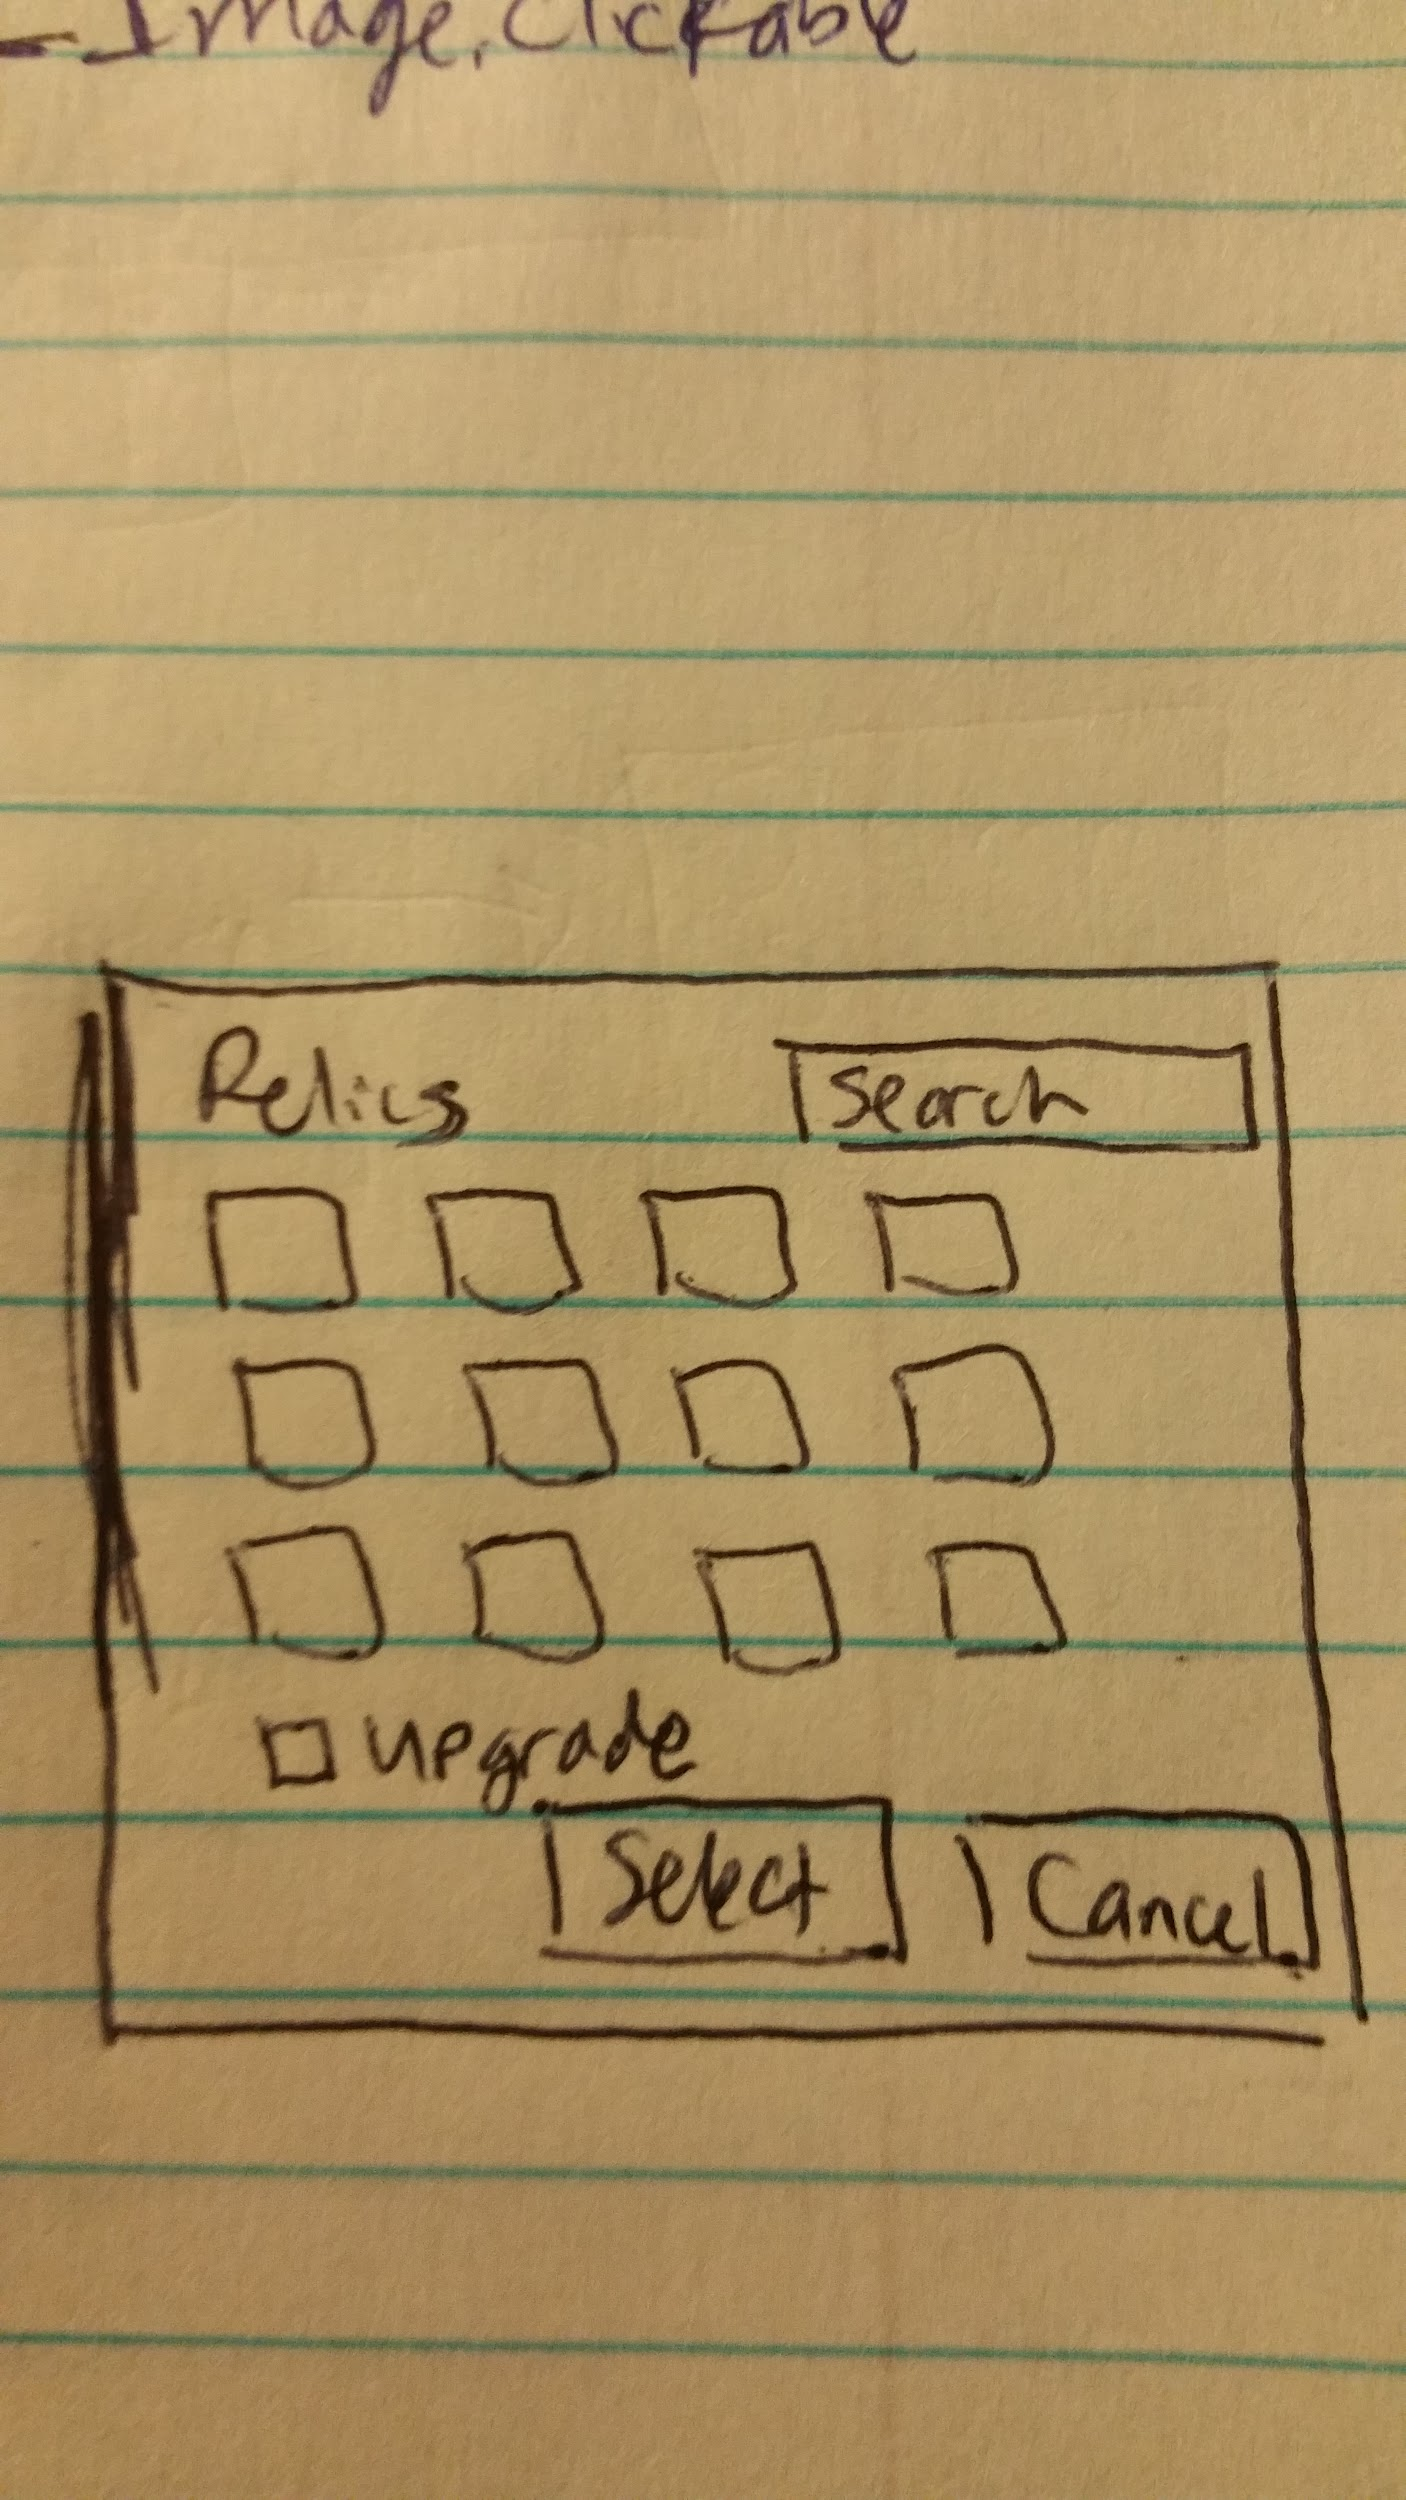 - Image. Clickable
Relics
Search
upgrade
Select
Cancel